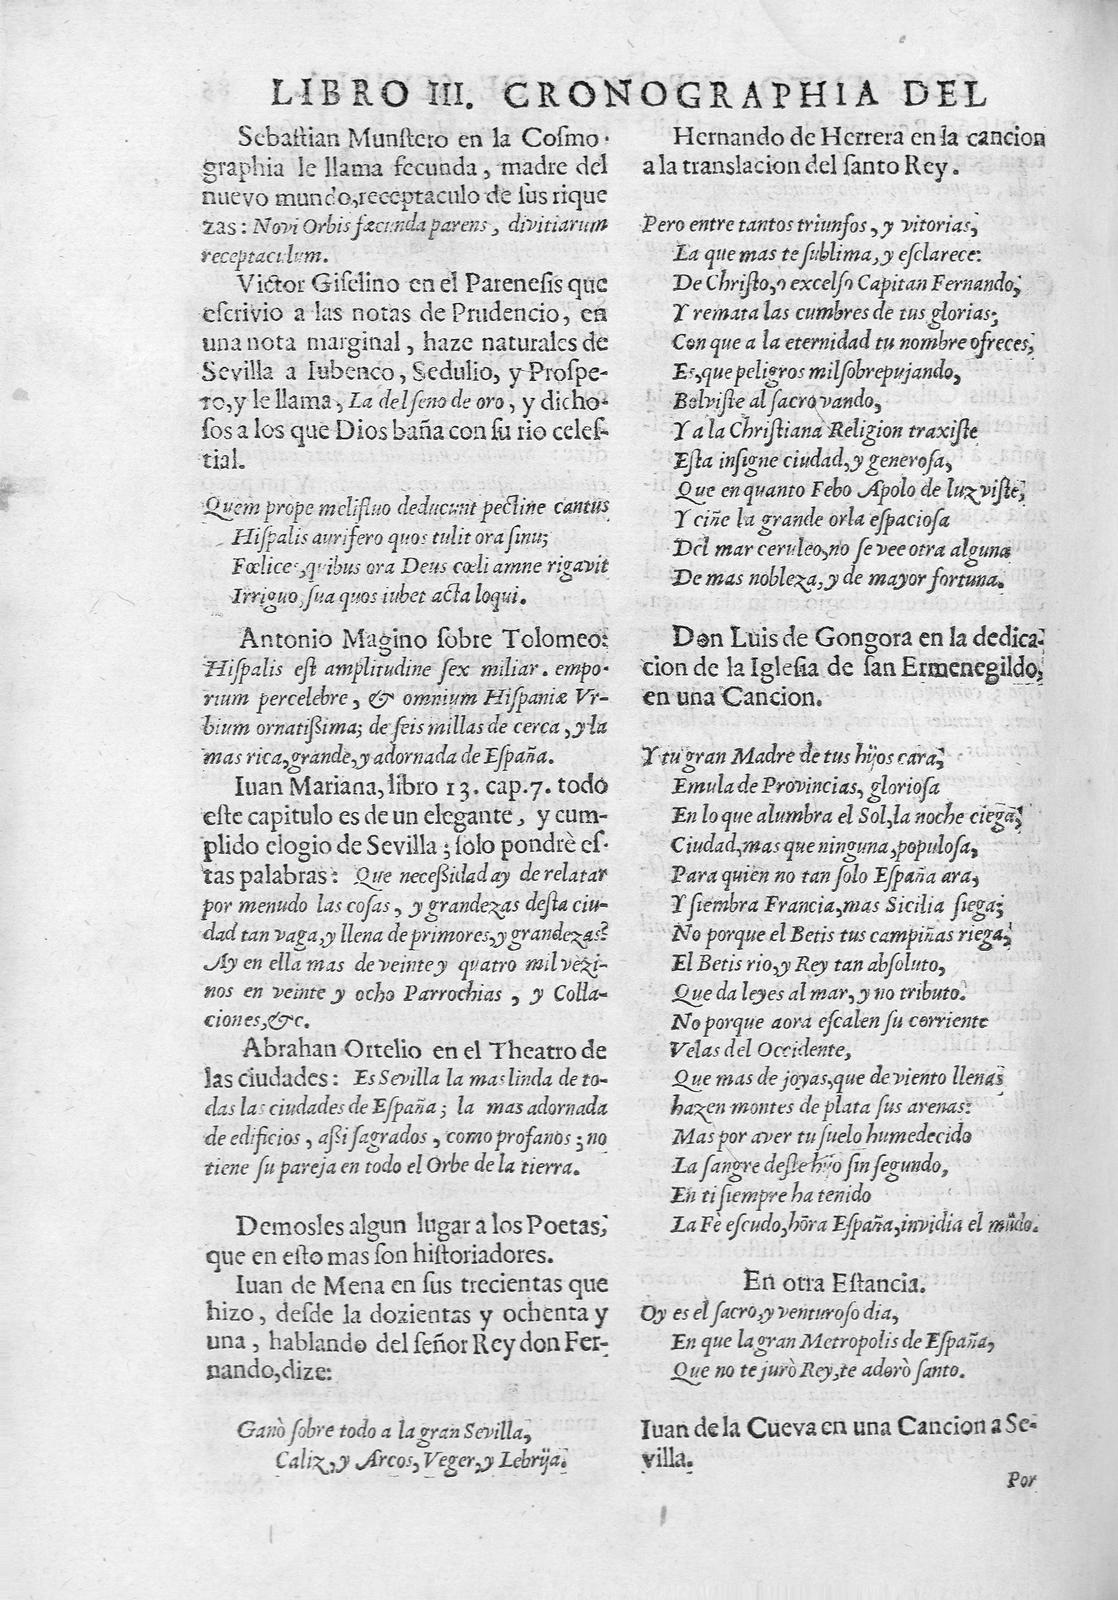 LIBRO III. CRONOGRAPHIA DEL
Sebaſtian Munſtero en la Coſmo-
graphia le llama fecunda, madre del
nuevo mundo, receptaculo de ſus rique
zas: Novi Orbis fæcunda parens, divitiarum
receptaculum.
Victor Giſelino en el Pareneſis que
eſcrivio a las notas de Prudencio, en
una nota marginal, haze naturales de
Sevilla a Iubenco, Sedulio, y Proſpe-
ro, y le llama, La del ſeno de oro, y dicho-
ſos a los que Dios baña con ſu rio celeſ-
tial.
Quem prope melifluo deducunt pectine cantus
Hiſpalis aurifero quos tulit ora ſinu;
Fœlices, quibus ora Deus cœli amne rigavit
Irriguo, ſua quos iubet acta loqui.
Antonio Magino ſobre Tolomeo:
Hiſpalis eſt amplitudine ſex miliar. empo-
rium percelebre, & omnium Hiſpaniæ Vr-
bium ornatißima; de ſeis millas de cerca, y la
mas rica, grande, y adornada de Eſpaña.
Iuan Mariana, libro 13. cap. 7. todo
eſte capitulo es de un elegante, y cum-
plido elogio de Sevilla; ſolo pondrè eſ-
tas palabras: Que neceßidad ay de relatar
por menudo las coſas, y grandezas deſta ciu-
dad tan vaga, y llena de primores, y grandezas?
Ay en ella mas de veinte y quatro mil vezi-
nos en veinte y ocho Parrochias, y Colla-
ciones, &c.
Abrahan Ortelio en el Theatro de
las ciudades: Es Sevilla la mas linda de to-
das las ciudades de Eſpaña; la mas adornada
de edificios, aßi ſagrados, como profanos; no
tiene ſu pareja en todo el Orbe de la tierra.
Demosles algun lugar a los Poetas,
que en eſto mas ſon hiſtoriadores.
Iuan de Mena en ſus trecientas que
hizo, deſde la dozientas y ochenta y
una, hablando del ſeñor Rey don Fer-
nando, dize:
Ganò ſobre todo a la gran Sevilla,
Caliz, y Arcos, Veger, y Lebrija.
Hernando de Herrera en la cancion
a la translacion del ſanto Rey.
Pero entre tantos triunfos, y vitorias,
La que mas te ſublima, y eſclarece:
De Chriſto, o excelſo Capitan Fernando,
Y remata las cumbres de tus glorias;
Con que a la eternidad tu nombre ofreces,
Es, que peligros mil ſobrepujando,
Bolviſte al ſacro vando,
Y a la Chriſtiana Religion traxiſte
Eſta inſigne ciudad, y generoſa,
Que en quanto Febo Apolo de luz viſte,
Y ciñe la grande orla eſpacioſa
Del mar ceruleo, no ſe vee otra alguna
De mas nobleza, y de mayor fortuna.
Don Luis de Gongora en la dedica-
cion de la Igleſia de ſan Ermenegildo,
en una Cancion.
Y tu gran Madre de tus hijos cara,
Emula de Provincias, glorioſa
En lo que alumbra el Sol, la noche ciega,
Ciudad, mas que ninguna, populoſa,
Para quien no tan ſolo Eſpaña ara,
Y ſiembra Francia, mas Sicilia ſiega;
No porque el Betis tus campiñas riega,
El Betis rio, y Rey tan abſoluto,
Que da leyes al mar, y no tributo.
No porque aora eſcalen ſu corriente
Velas del Occidente,
Que mas de joyas, que de viento llenas
hazen montes de plata ſus arenas:
Mas por aver tu ſuelo humedecido
La ſangre deſte hijo ſin ſegundo,
En ti ſiempre ha tenido
La Fè eſcudo, hõra Eſpaña, invidia el mũdo.
En otra Eſtancia.
Oy es el ſacro, y venturoſo dia,
En que la gran Metropolis de Eſpaña,
Que no te jurò Rey, te adorò ſanto.
Iuan de la Cueva en una Cancion a Se-
villa.
Por